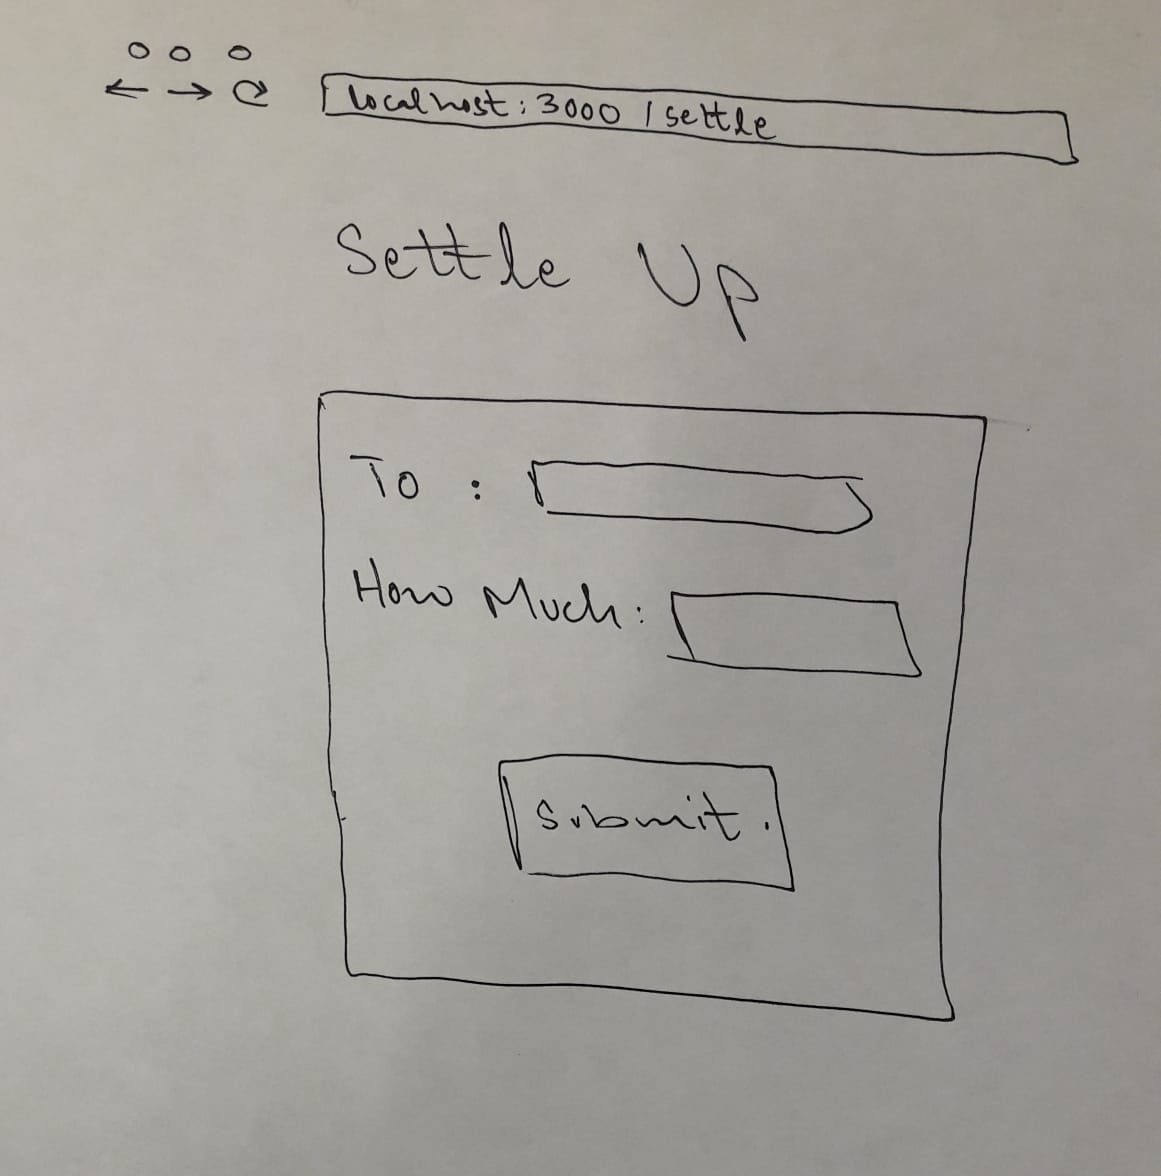 localhost:3000/settle
Settle Up
To :
How Much:
Submit.